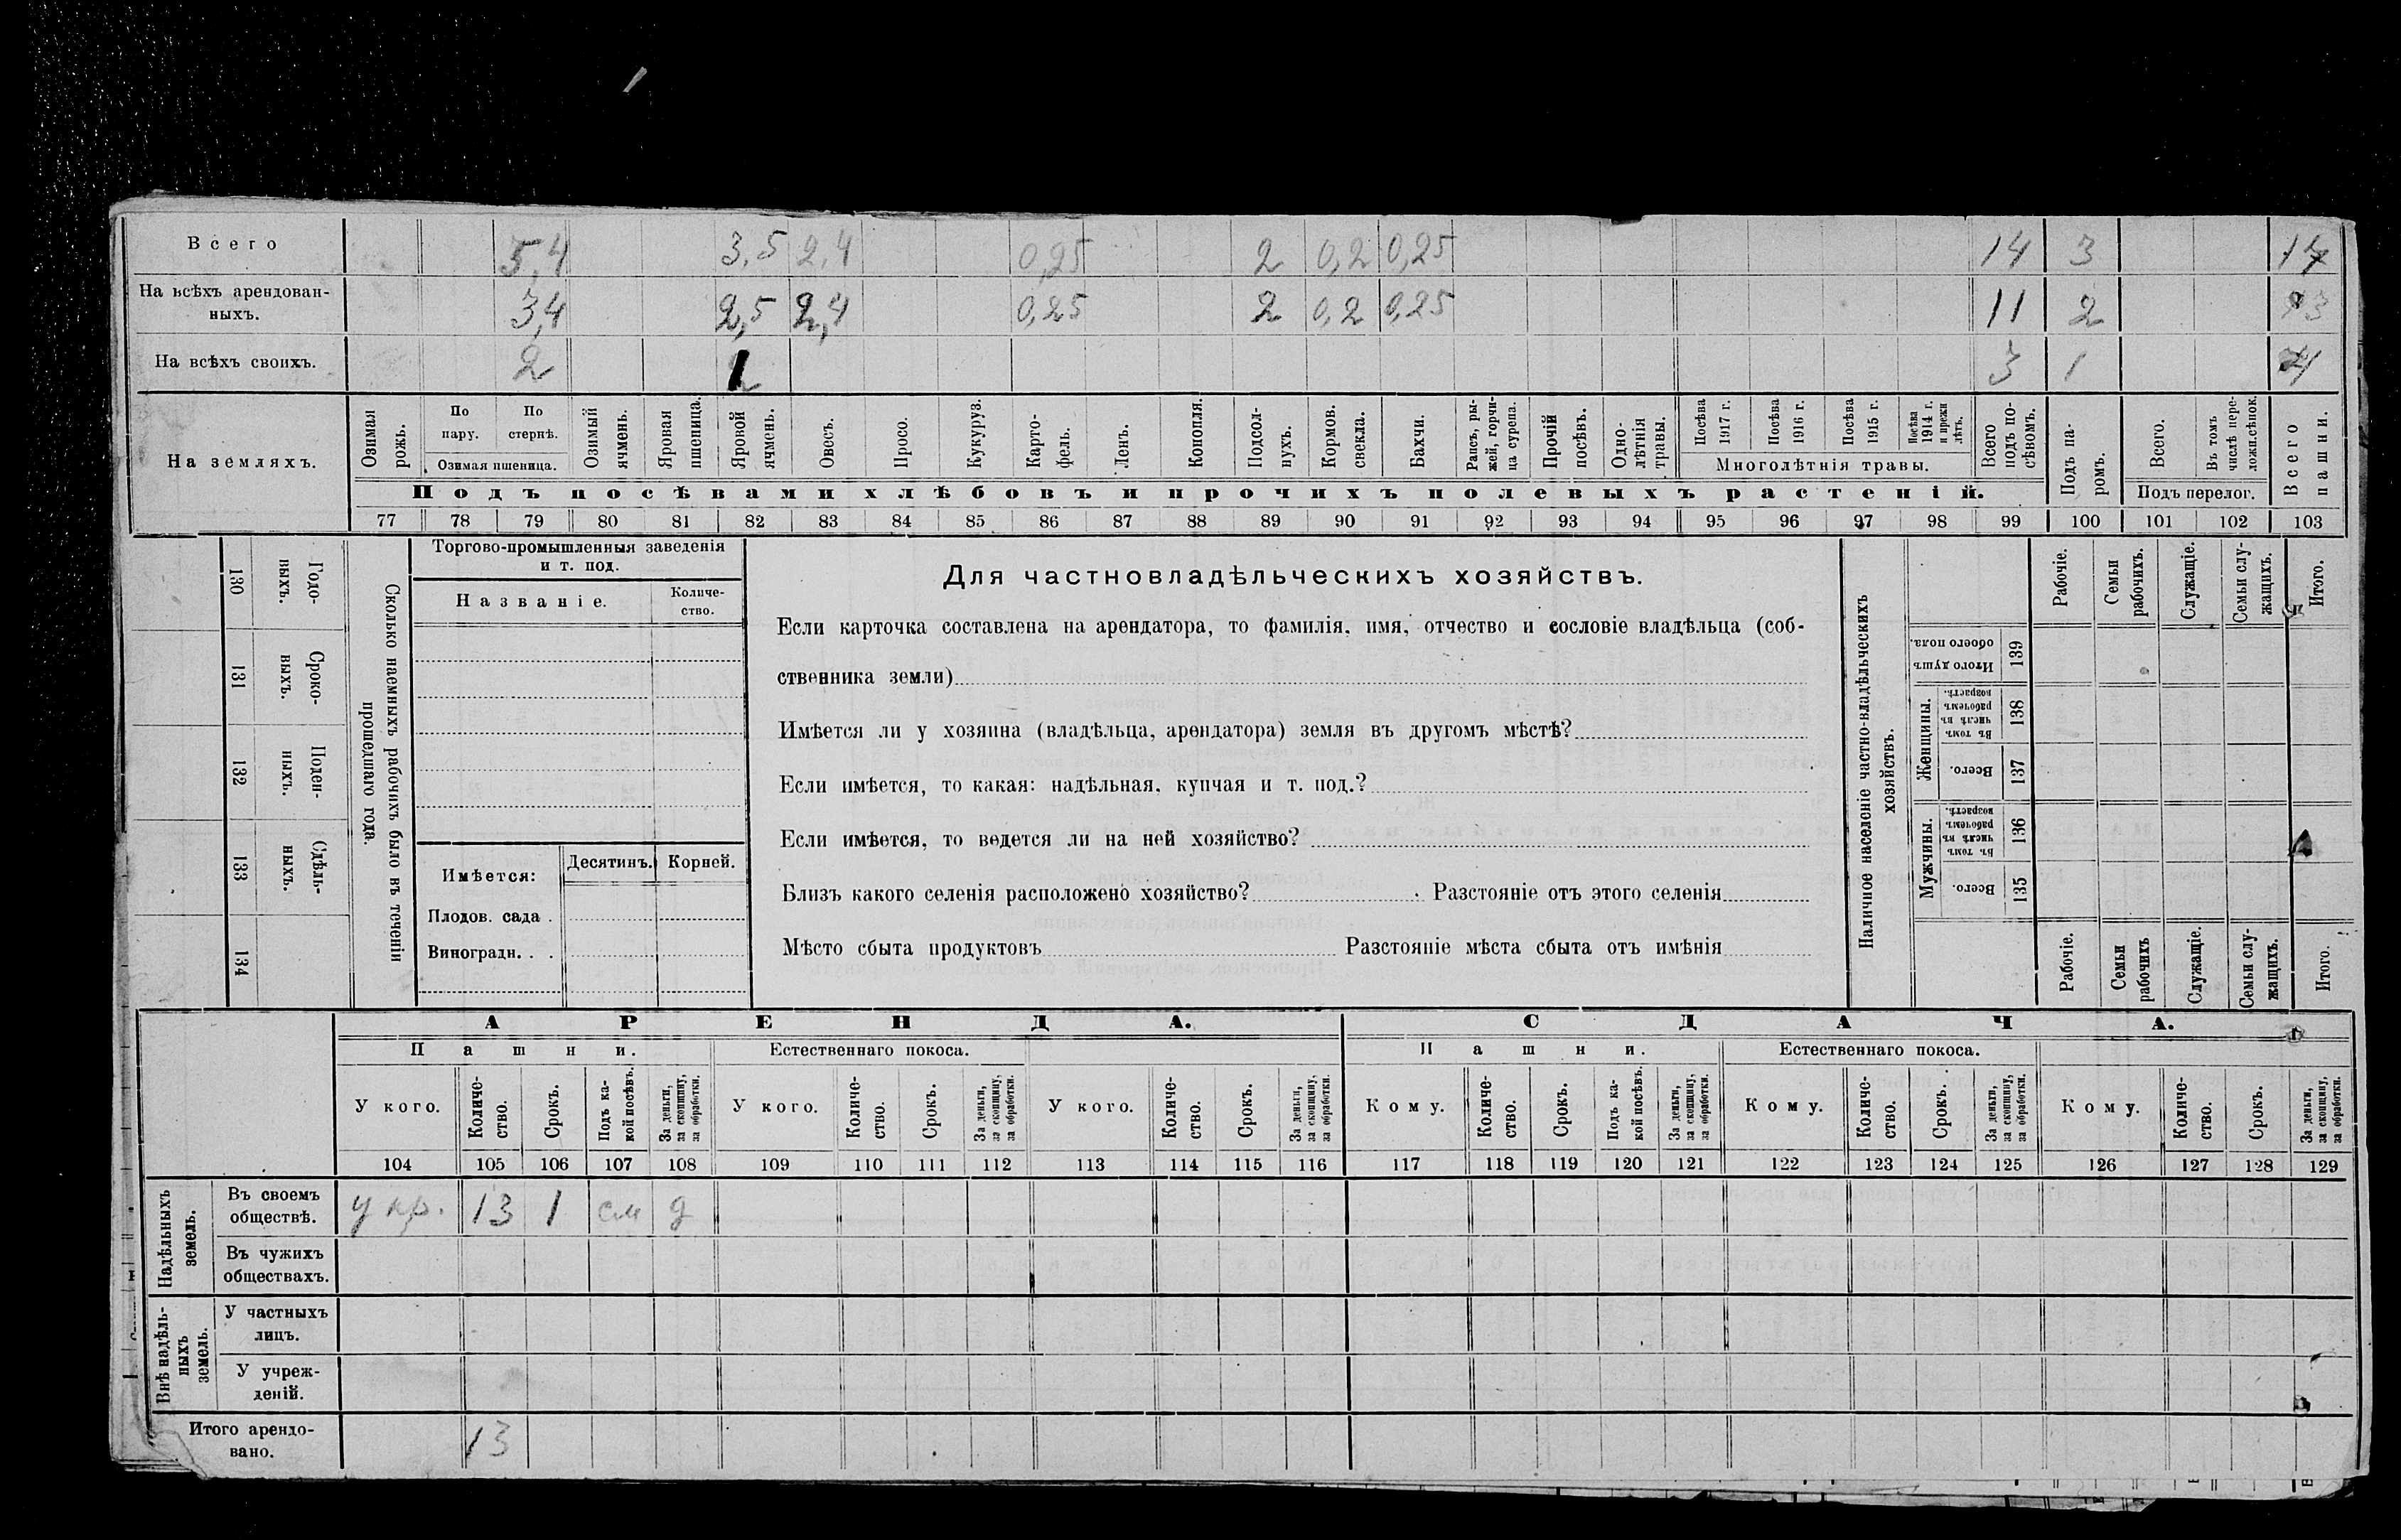 Всего 5,4 3,5 2,4 0,25 2 0,2 0,25 14 3 17
На всѣхъ арендован-
ныхъ. 3,4 2,5 2,4 0,25 2 0,2 0,25 11 2 13
На всѣхъ своихъ. 2 1 3 1 4
На земляхъ.
Озимая рожь.
По пару.
По стернѣ.
Озимая пшеница.
Озимый ячмень.
Яровая пшеница.
Яровой ячмень.
Овесъ.
Просо.
Кукуруз.
Карто-
фель.
Ленъ.
Конопля.
Подсол-
нухъ.
Кормов. свекла.
Бахчи.
Рапсъ, ры-
жей, горчи-
ца сурепа.
Прочій посѣвъ.
Одно-
лѣтнія травы.
Посѣва 1917 г.
Посѣва 1916 г.
Посѣва 1915 г.
Посѣва 1914 г. и прежн лѣтъ.
Многолѣтнія травы.
Всего подъ по-
сѣвомъ.
Подъ па-
ромъ.
Всего.
Въ томъ числѣ пере-
ложн.сѣнок.
Подъ перелог.
Всего пашни.
Подъ посѣвами хлѣбовъ и прочихъ полевыхъ растеній.
77 78 79 80 81 82 83 84 85 86 87 88 89 90 91 92 93 94 95 96 97 98 99 100 101 102 103
Годо-
ныхъ.
130
Сроко-
ныхъ.
131
Поден-
ныхъ.
132
Сдѣль-
ныхъ.
133
134
Сколько наемныхъ рабочихъ было въ теченіи
прошедшаго года.
Торгово-промышленныя заведенія
и т. под.
Названіе.
Количе-
ство.
Имѣется:
Десятинъ.
Корней.
Плодов. сада .
Виноградн. . .
Для частновладѣльческихъ хозяйствъ.
Если карточка составлена на арендатора, то фамилія, имя, отчество и сословіе владѣльца (соб-
ственника земли)
Имѣется ли у хозяина (владѣльца, арендатора) земля въ другомъ мѣстѣ?
Если имѣется, то какая: надѣльная, купчая и т. под.?
Если имѣется, то ведется ли на ней хозяйство?
Близъ какого селенія расположено хозяйство? . Разстояніе отъ этого селенія
Мѣсто сбыта продуктовъ Разстояніе мѣста сбыта отъ имѣнія
Наличное населеніе частно-владѣльческихъ
хозяйствъ.
Рабочіе.
Семьи рабочихъ.
Служащіе.
Семьи слу-
жащихъ.
Итого.
Итого душъ обоего пола.
139
Женщины.
Въ томъ числѣ въ рабочемъ возрастѣ.
138
Всего.
137
Мужчины.
Въ томъ числѣ въ рабочемъ возрастѣ.
136
Всего.
135
Рабочіе.
Семьи рабочихъ
Служащіе.
Семьи слу-
жащихъ.
Итого.
АРЕНДА. СДАЧА.
Пашни. Естественнаго покоса. Пашни. Естественнаго покоса.
У кого.
Количе-
ство.
Срокъ.
Подъ ка-
кой посѣвъ.
За деньги, за скопщину, за обработки.
У кого.
Количе-
ство.
Срокъ.
За деньги, за скопщину, за обработки.
У кого.
Количе-
ство.
Срокъ.
За деньги, за скопщину, за обработки.
Кому.
Количе-
ство.
Срокъ.
Подъ ка-
кой посѣвъ.
За деньги, за скопщину, за обработки.
Кому.
Количе-
ство.
Срокъ.
За деньги, за скопщину, за обработки.
Кому.
Количе-
ство.
Срокъ.
За деньги, за скопщину, за обработки.
104 105 106 107 108 109 110 111 112 113 114 115 116 117 118 119 120 121 122 123 124 125 126 127 128 129
Надѣльныхъ земель.
Въ своемъ
обществѣ. у кр. 13 1 см д
Въ чужихъ
обществахъ.
Внѣ надѣль-
ныхъ земель.
У частныхъ
лицъ.
У учреж-
деній.
Итого арендо-
вано. 13